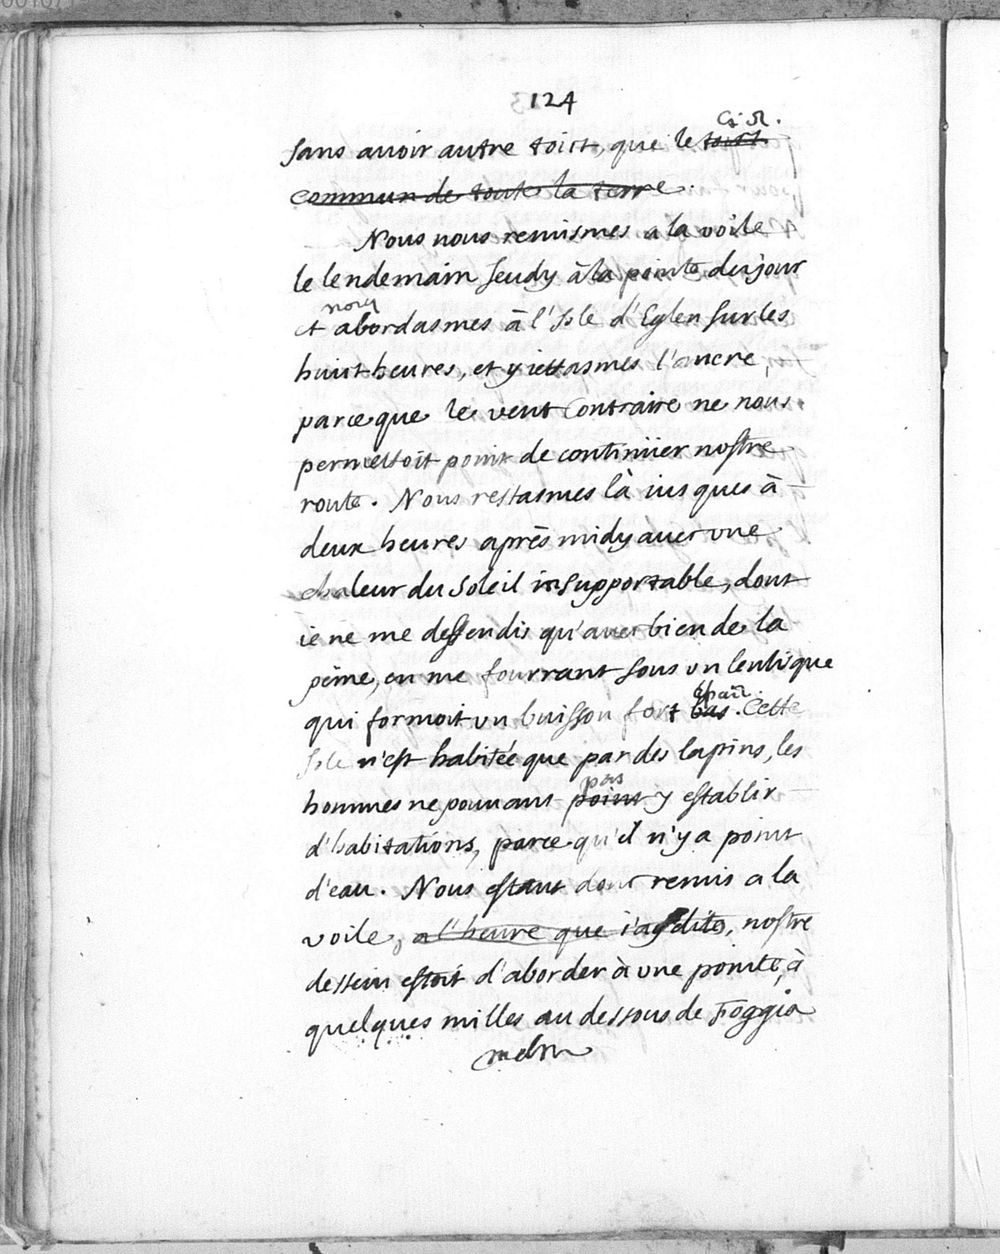 124
sans auoir autre toict, que le toict Ciel.
commun de toute la terre.
Nous nous remismes à la voile
le lendemain Jeudy à la pointe du jour
nous
et abordasmes à l'Isle d'Eglen sur les
huict heures, et y iettasmes l'ancre,
parce que le vent contraire ne nous
permettoit point de continüer nostre
route. Nous restasmes là iusques à
deux heures après midy auec vne
chaleur du Soleil insupportable, dont
ie ne me deffendis qu'auec bien de la
peine, en me fourrant sous vn lentisque
qui formoit vn buisson fort bas espais. Cette
Isle n'est habitée que par des lapins, les
hommes ne pouuant point pas y establir
d'habitations, parce qu'il n'y a point
d'eau. Nous estant donc remis a la
voile, a l'heure que i'ay dite, nostre
dessein estoit d'aborder à vne pointe, à
quelques milles au dessous de Foggia